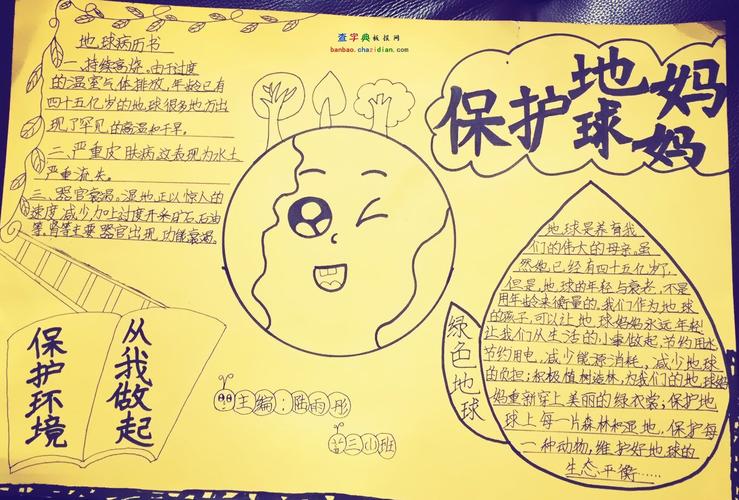 查字典板报网
banbao.chazidian.com
保护地球妈妈
地球病历书
一、持续高烧。由于过度
的温室气体排放,年龄已有
四十五亿岁的地球很多地方出
现了罕见的高温和干旱。
二、严重皮肤病,这表现为水土
严重流失。
三、器官衰竭。湿地正以惊人的
速度减少,加上过度开采矿石、石油
等,肾等主要器官出现功能衰竭。
保护环境
从我做起
主编:陆雨彤
三(1)班
绿色地球
地球是养育我
们的伟大的母亲。虽
然她已经有四十五亿岁了,
但是,地球的年轻与衰老,不是
用年龄来衡量的,我们作为地球
的孩子,可以让地球妈妈永远年轻!
让我们从生活的小事做起,节约用水
节约用电,减少能源消耗,减少地球
的负担;积极植树造林,为我们的地球妈
妈重新穿上美丽的绿衣裳;保护地
球上每一片森林和湿地,保护每
一种动物,维护好地球的
生态平衡……